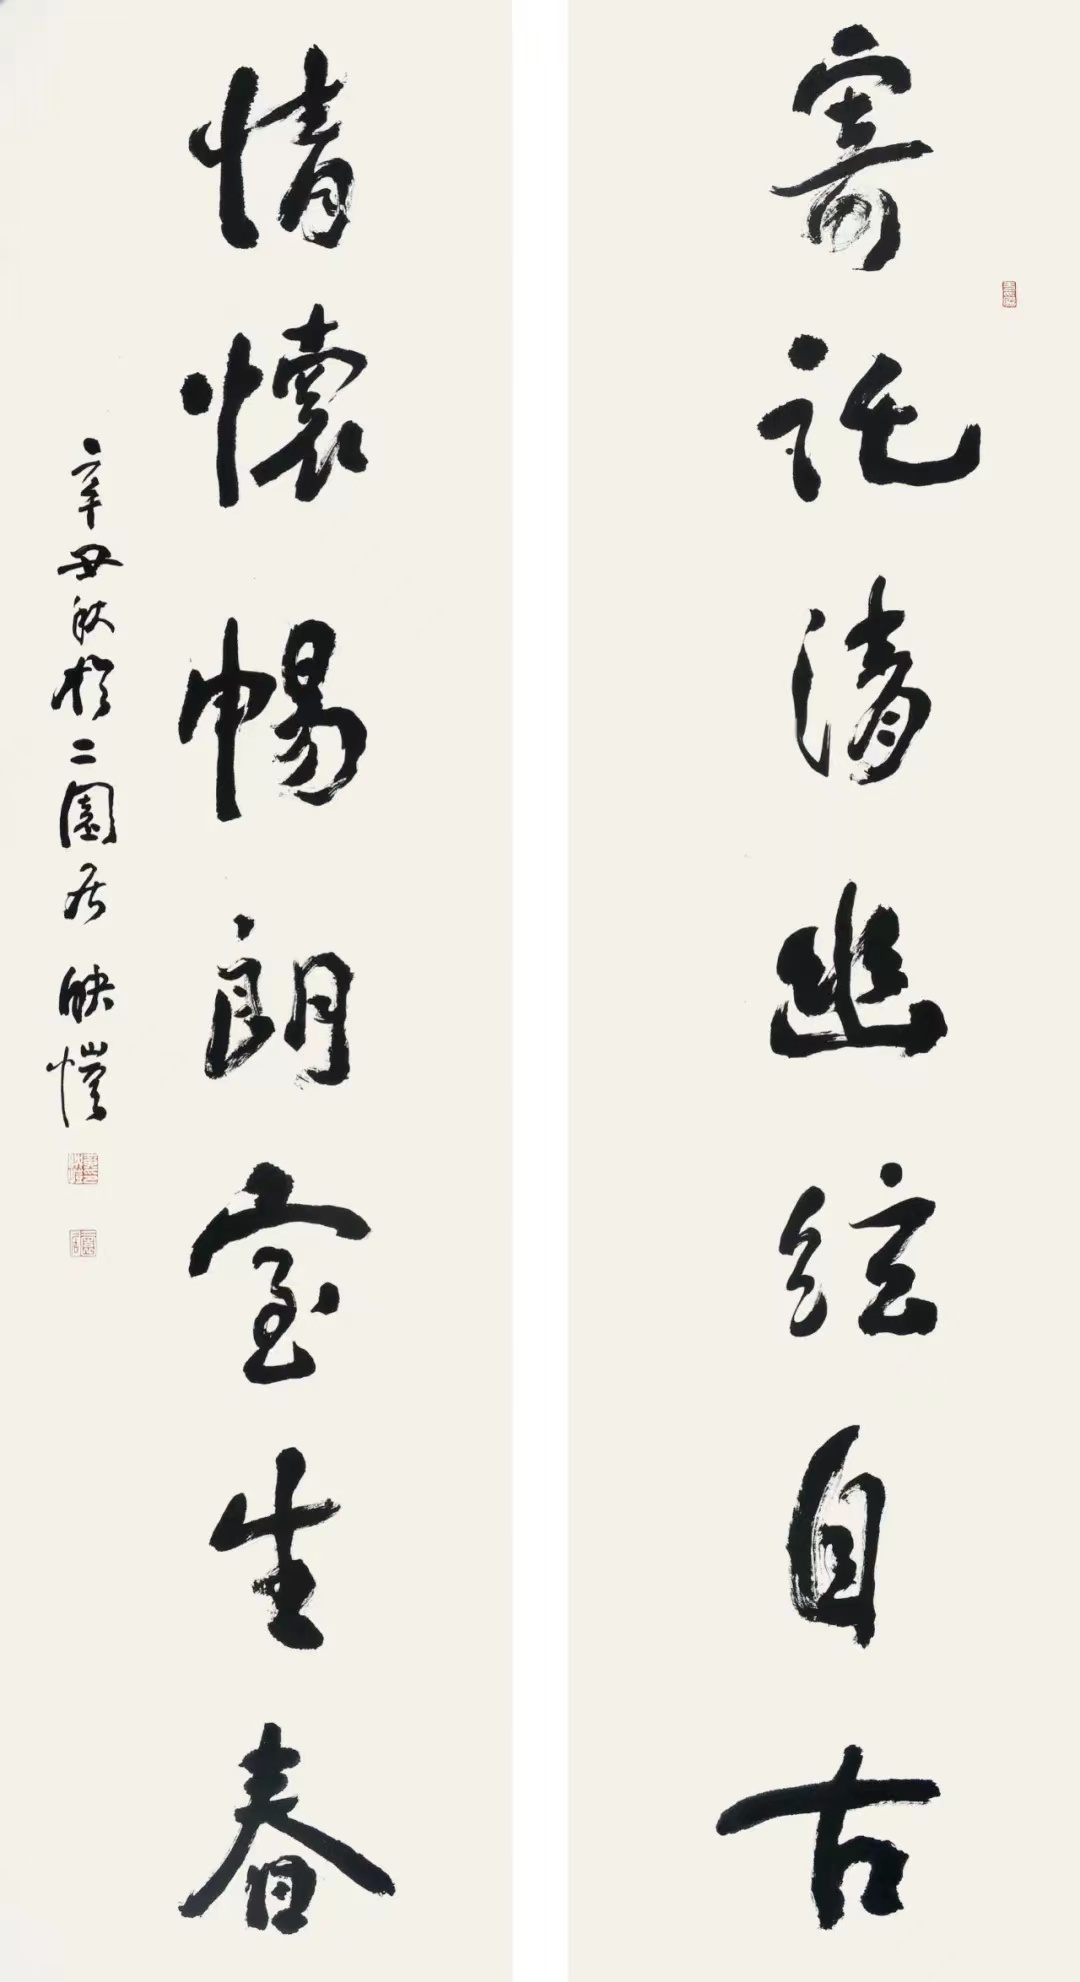 寄託清幽絃自古
情懷暢朗室生春
辛丑秋於二園居 映愷